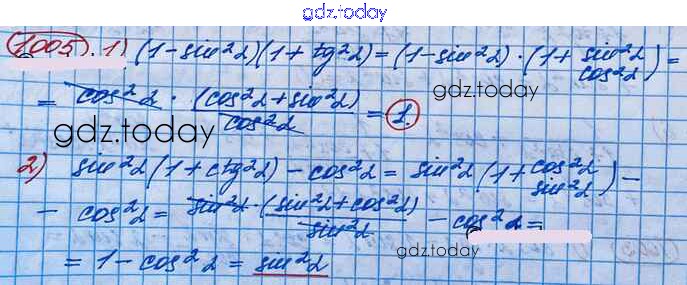 gdz.today
1005. 1) (1-sin²α)(1+tg²α)=(1-sin²α)·(1+sin²α/cos²α)=
= cos²α · (cos²α+sin²α)/cos²α = 1.
gdz.today
gdz.today
2) sin²α(1+ctg²α)-cos²α=sin²α(1+cos²α/sin²α)-
- cos²α= sin²α·(sin²α+cos²α)/sin²α -cos²α=
= 1-cos²α= sin²α
gdz.today